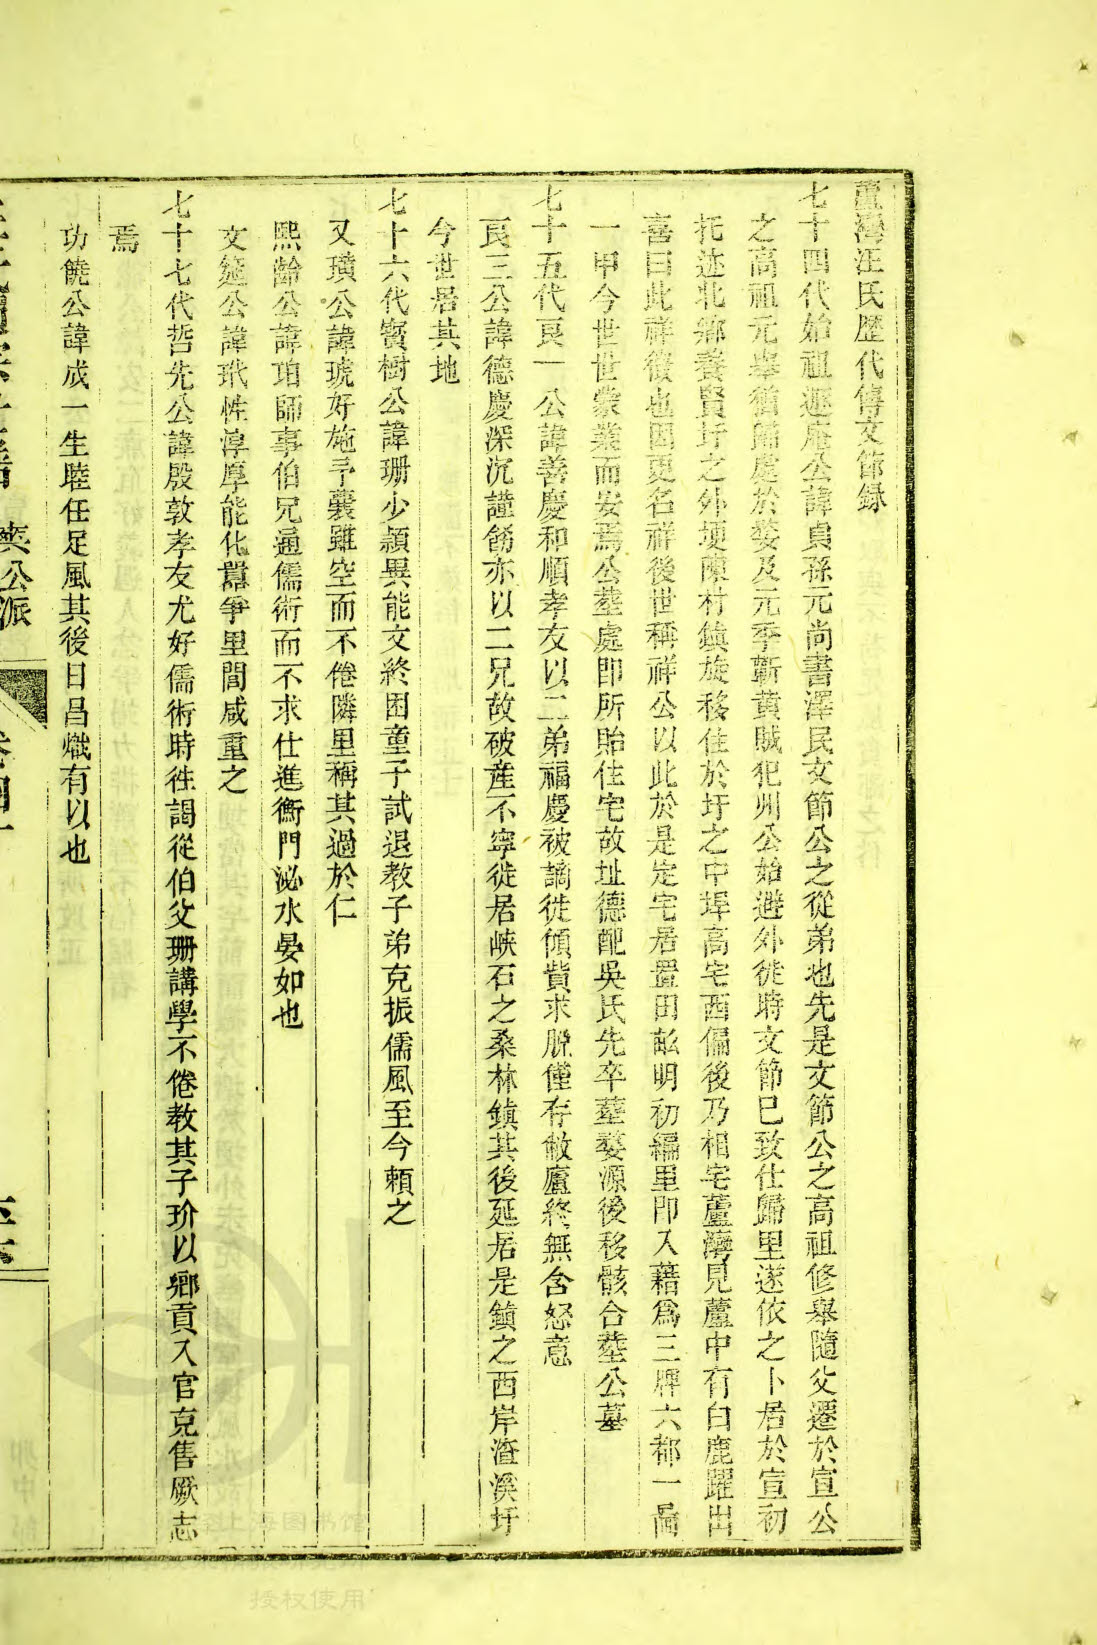 蘆灣汪氏歷代傳文節録
七十四代始祖遯庵公諱貞孫元尚書澤民文節公之從弟也先是文節公之高祖修舉隨父遷於宣公
之高祖元舉猶歸處於婺及元季蘄黄賊犯州公始避外徙時文節巳致仕歸里遂依之卜居於宣初
托迹北鄉養賢圩之外埂陳村鎮旋移住於圩之中埠高宅西偏後乃相宅蘆灣見蘆中有白鹿躍出
喜曰此祥徵也因更名祥後世稱祥公以此於是定宅居置田畝明初編里即入藉爲三牌六都一啚
一甲今世世蒙業而安焉公塟處即所貽住宅故址德配吳氏先卒塟婺源後移骸合塟公墓
七十五代良一公諱善慶和順孝友以二弟福慶被謫徙傾貲求脫僅存敝廬終無含怒意
良三公諱德慶深沉謹飭亦以二兄故破産不寧徙居峽石之桑林鎮其後延居是鎮之西岸渣溪圩
今世居其地
七十六代寳樹公諱珊少頴異能文終困童子試退教子弟克振儒風至今頼之
又璜公諱琥好施予囊雖空而不倦隣里稱其過於仁
熙齡公諱珀師事伯兄通儒術而不求仕進衡門泌水晏如也
文筵公諱玳性淳厚能化嚚爭里閭咸重之
七十七代哲先公諱殷敦孝友尤好儒術時徃謁從伯父珊講學不倦教其子玠以鄉貢入官克售厥志
焉
功饒公諱成一生睦任足風其後日昌熾有以也
公派
授权使用